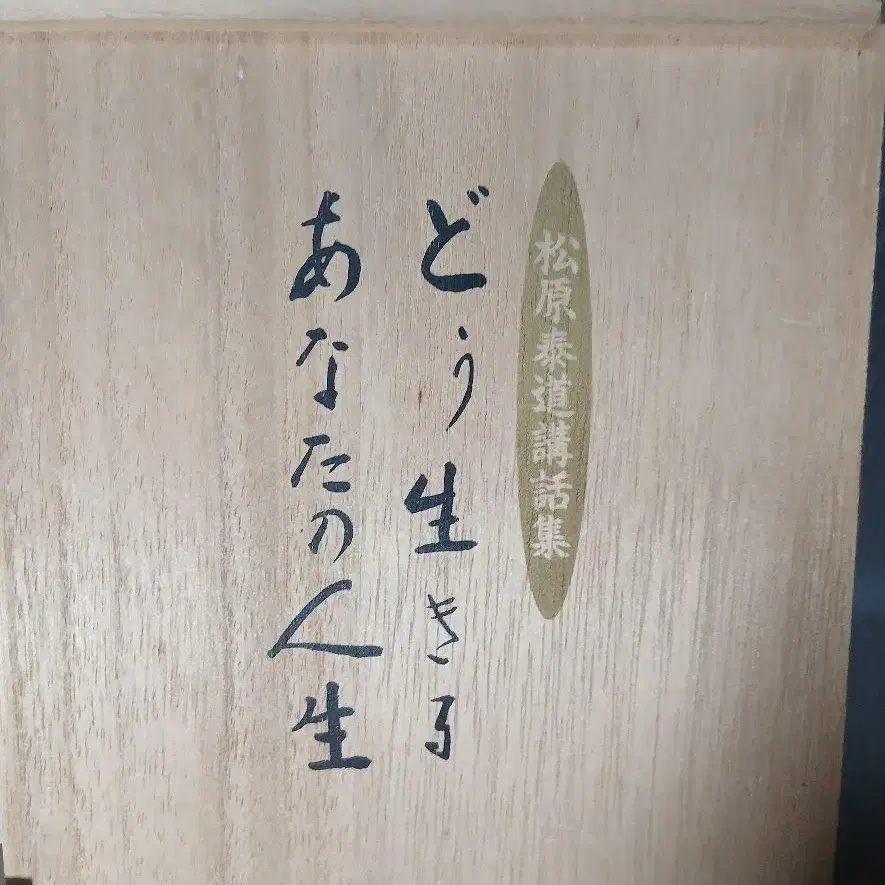 松原泰道講話集
どう生きる
あなたの人生